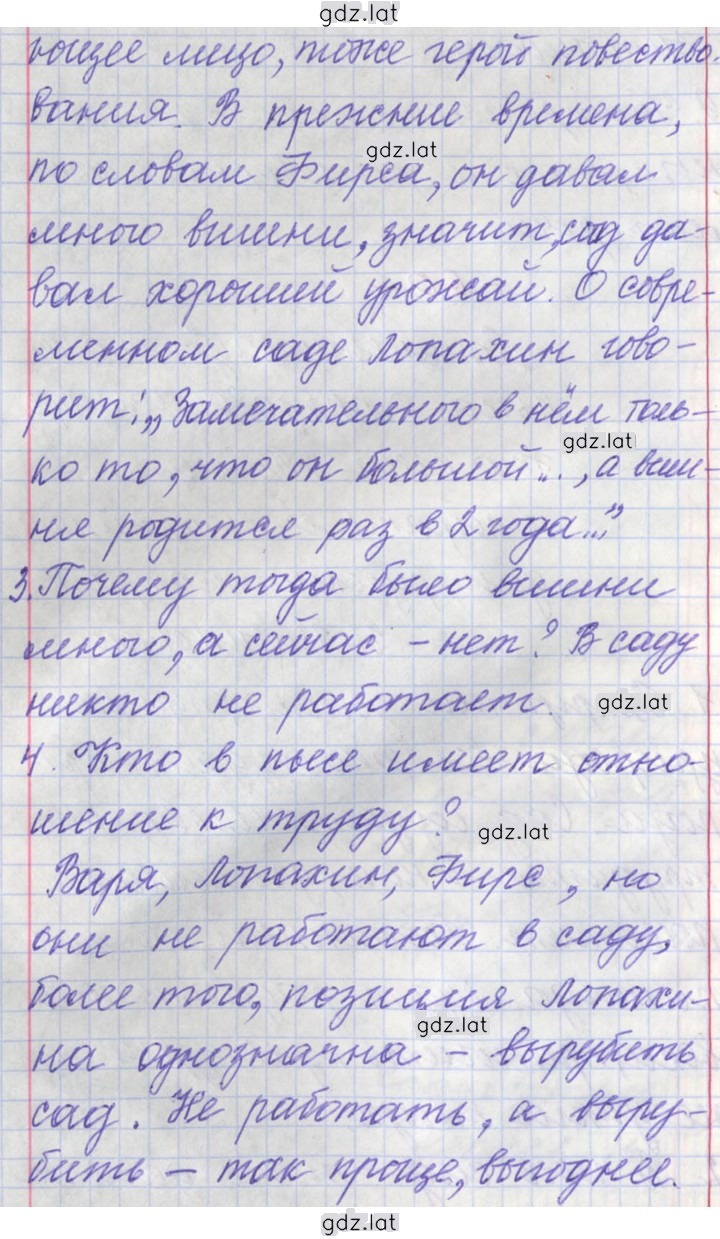 gdz.lat
ющее лицо, тоже герой повество-
вания. В прежние времена,
gdz.lat
по словам Фирса, он давал
много вишни, значит, сад да-
вал хороший урожай. О совре-
менном саде Лопахин гово-
рит: „Замечательного в нём толь-
gdz.lat
ко то, что он большой..., а виш-
ня родится раз в 2 года..."
3. Почему тогда было вишни
много, а сейчас - нет? В саду
никто не работает.
gdz.lat
4. Кто в пьесе имеет отно-
шение к труду?
gdz.lat
Варя, Лопахин, Фирс, но
они не работают в саду,
более того, позиция Лопахи-
gdz.lat
на однозначна - вырубить
сад. Не работать, а выру-
бить - так проще, выгоднее.
gdz.lat